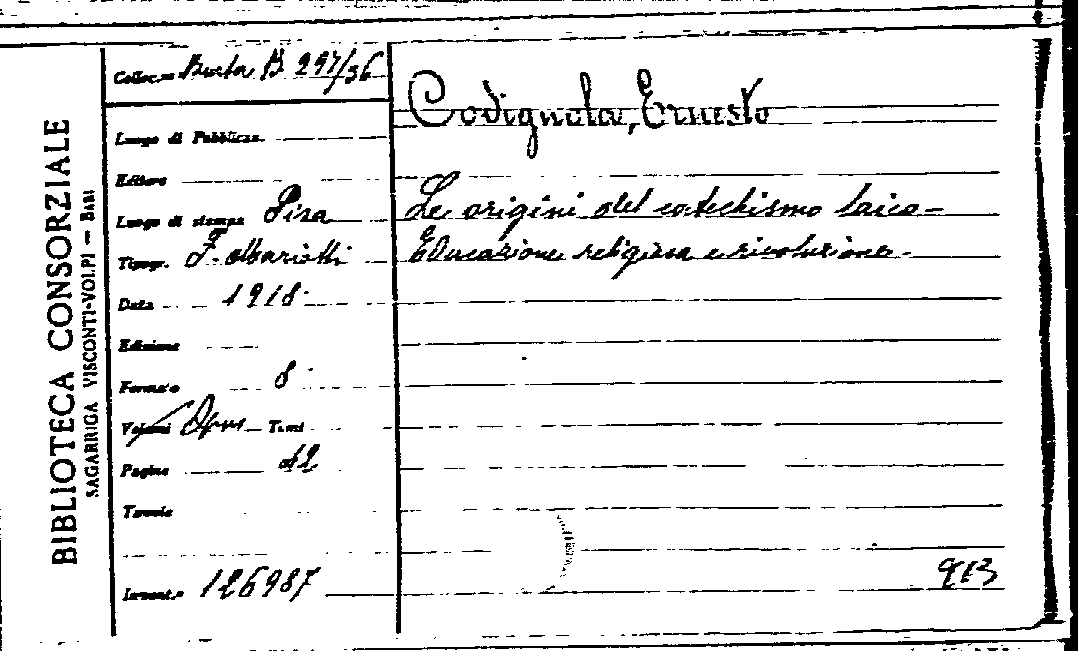 BIBLIOTECA CONSORZIALE
SAGARRIGA VISCONTI-VOLPI — BARI
Colloc.ne Busta B 297/36
Luogo di Pubblicaz.
Editore
Luogo di stampa Pisa
Tipogr. F. Mariotti
Data 1918
Edizione
Formato 8
Volumi Opus Tomi
Pagine 12
Tavole
Invent.o 126987
Codignola, Ernesto
Le origini del catechismo laico -
Educazione religiosa e rivoluzione.